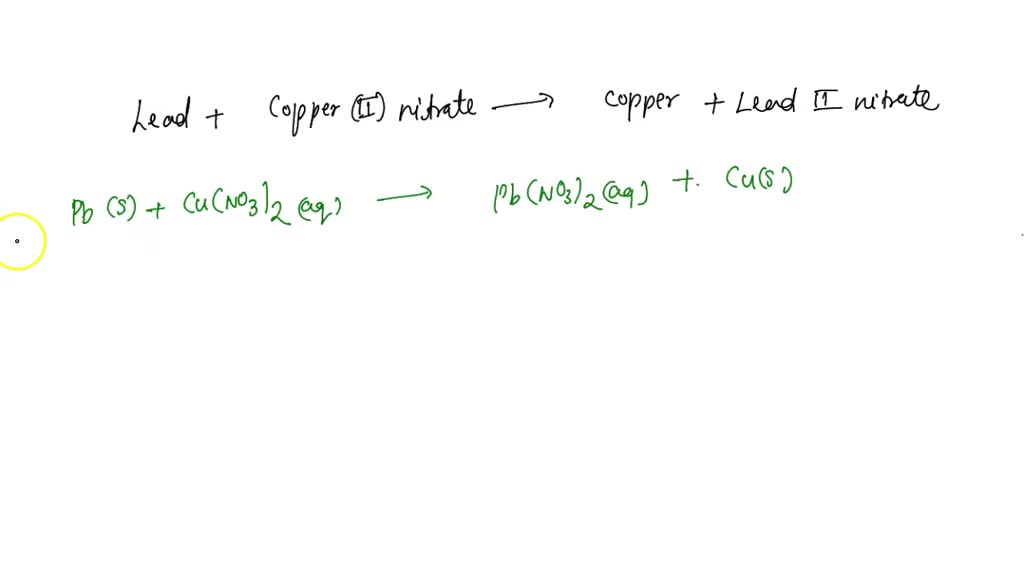 Lead + Copper (II) nitrate → copper + Lead II nitrate
Pb (s) + Cu(NO3)2 (aq) → Pb(NO3)2 (aq) + Cu(s)